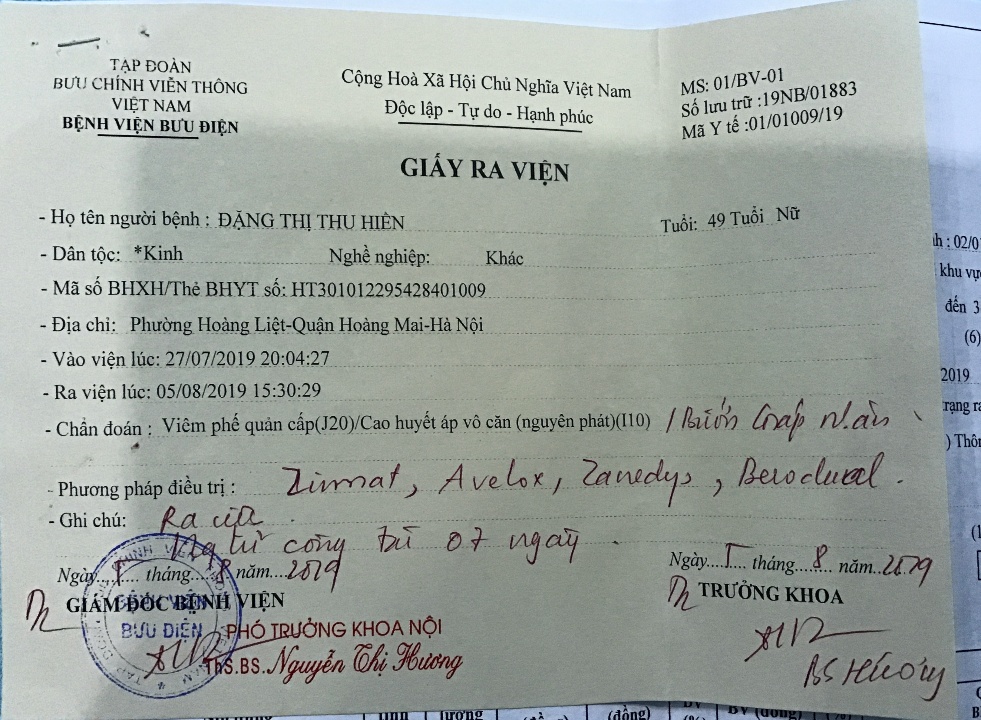 TẬP ĐOÀN
BƯU CHÍNH VIỄN THÔNG
VIỆT NAM
BỆNH VIỆN BƯU ĐIỆN
Cộng Hoà Xã Hội Chủ Nghĩa Việt Nam
Độc lập - Tự do - Hạnh phúc
MS: 01/BV-01
Số lưu trữ :19NB/01883
Mã Y tế :01/01009/19
GIẤY RA VIỆN
- Họ tên người bệnh : ĐẶNG THỊ THU HIỀN Tuổi: 49 Tuổi Nữ
- Dân tộc: *Kinh Nghề nghiệp: Khác
- Mã số BHXH/Thẻ BHYT số: HT301012295428401009
- Địa chỉ: Phường Hoàng Liệt-Quận Hoàng Mai-Hà Nội
- Vào viện lúc: 27/07/2019 20:04:27
- Ra viện lúc: 05/08/2019 15:30:29
- Chẩn đoán : Viêm phế quản cấp(J20)/Cao huyết áp vô căn (nguyên phát)(I10) / Bướu giáp nhân
- Phương pháp điều trị : Zinmat, Avelox, Zanedys, Berodual.
- Ghi chú: Ra viện.
Ngày...5... tháng...8 năm...2019
GIÁM ĐỐC BỆNH VIỆN
BƯU ĐIỆN
PHÓ TRƯỞNG KHOA NỘI
ThS.BS. Nguyễn Thị Hương
Ngày...5 tháng...8 năm...2019
TRƯỞNG KHOA
BS Hương
h : 02/0
khu vự
đến 3
(6)
2019
trạng ra
) Thôn
(đồng)
BV (đồng)